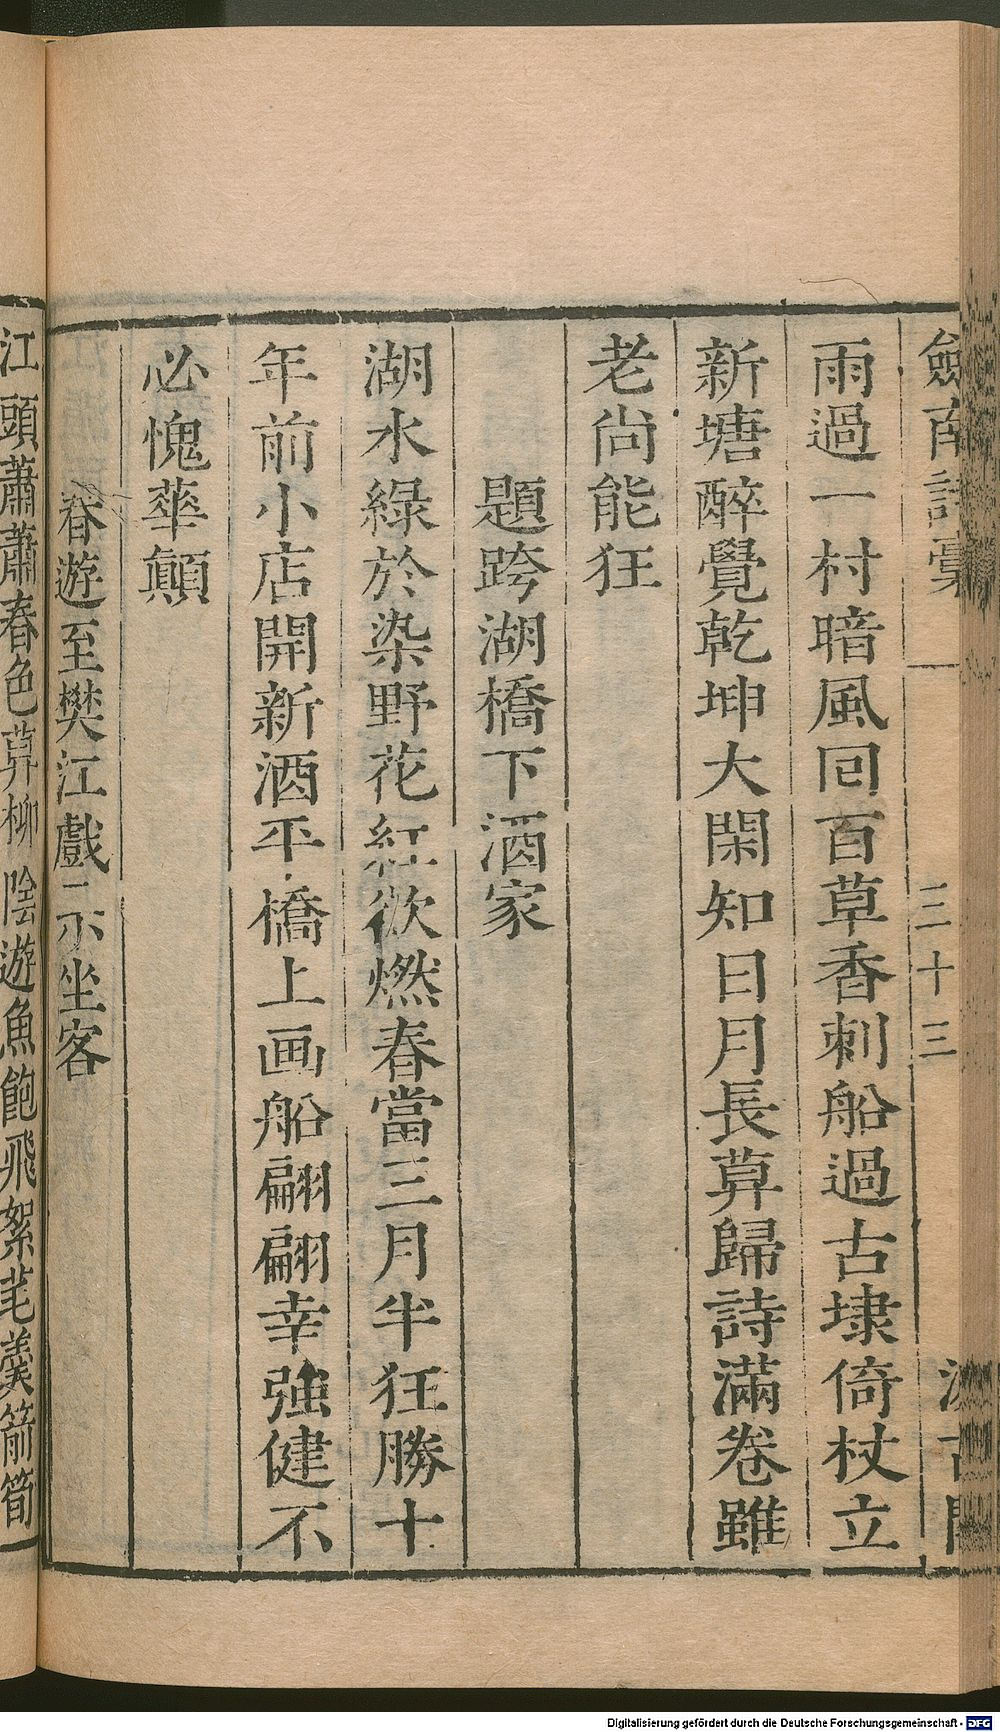 劍南詩稾
三十三
汲古閣
雨過一村暗風回百草香刺船過古埭倚杖立
新塘醉覺乾坤大閑知日月長算歸詩滿卷雖
老尚能狂
題跨湖橋下酒家
湖水綠於染野花紅欲燃春當三月半狂勝十
年前小店開新酒平橋上画船翩翩幸強健不
必愧華顛
春遊至樊江戲示坐客
江頭蕭蕭春色莫柳陰遊魚飽飛絮芼羹箭筍
Digitalisierung gefördert durch die Deutsche Forschungsgemeinschaft - DFG